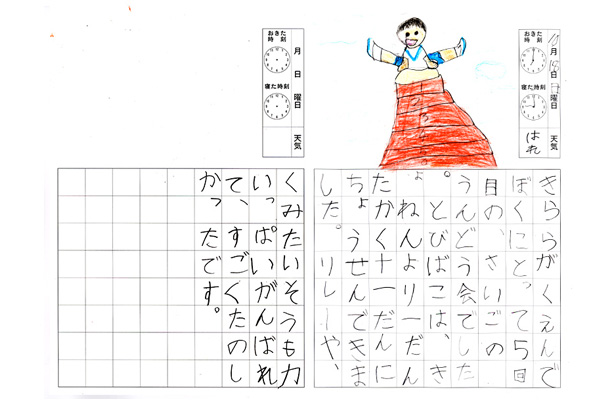 おきた時刻
寝た時刻
月
日
曜日
はれ
天気
きららがくえんで
ぼくにとって5回
目の、さいごの
うんどう会でした
。とびばこは、き
ょねんより一だん
たかく十一だんに
ちょうせんできま
した。リレーや、
おきた時刻
寝た時刻
月
日
曜日
天気
くみたいそうも力
いっぱいがんばれ
て、すごくたのし
かったです。